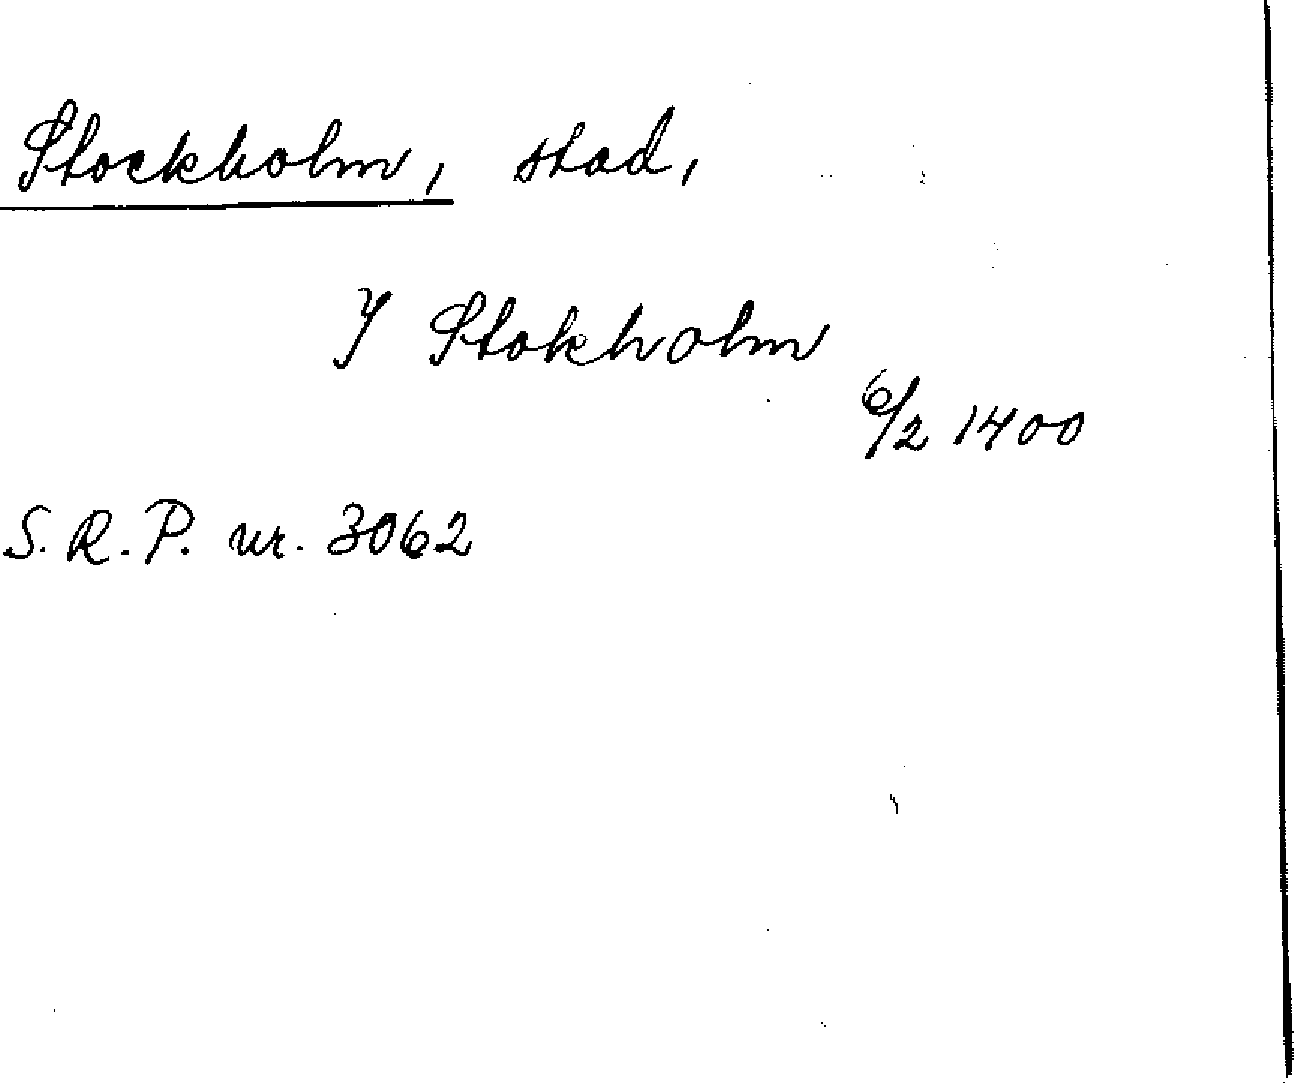 Stockholm, stad,
J Stokholm
6/2 1400
S.R.P. nr. 3062